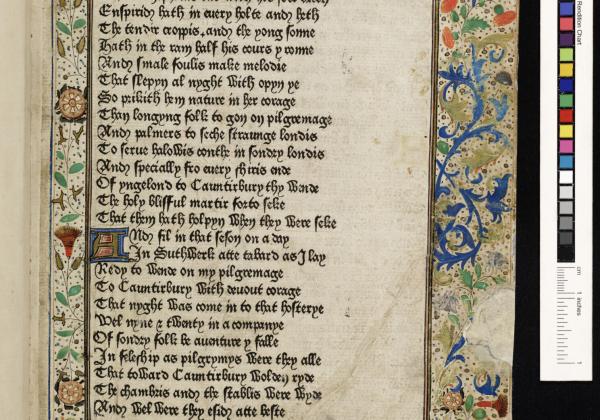 Enspirid hath in euery holte and heth
The tendir croppis, and the yong sonne
Hath in the ram half his cours y ronne
And smale foulis make melodie
That slepyn al nyght with opyn ye
So prikith hem nature in her corage
Than longyng folk to gon on pilgremage
And palmers to seche straunge londis
To serue halowis couthe in sondry londis
And specially fro euery shiris ende
Of yngelond to Cauntirbury thy wende
The holy blisful martir forto seke
That them hath holpyn when they were seke
And fil in that seson on a day
In Suthwerk atte tabard as I lay
Redy to wende on my pilgremage
To Cauntirbury with deuout corage
That nyght was come in to that hosterye
Wel nyne & twenty in a companye
Of sondry folk be auenture y falle
In feleship as pilgrymys were they alle
That toward Cauntirbury wolden ryde
The chambris and the stablis were wyde
And wel were they esid atte beste
Rendition Chart
cm
inches
1
1